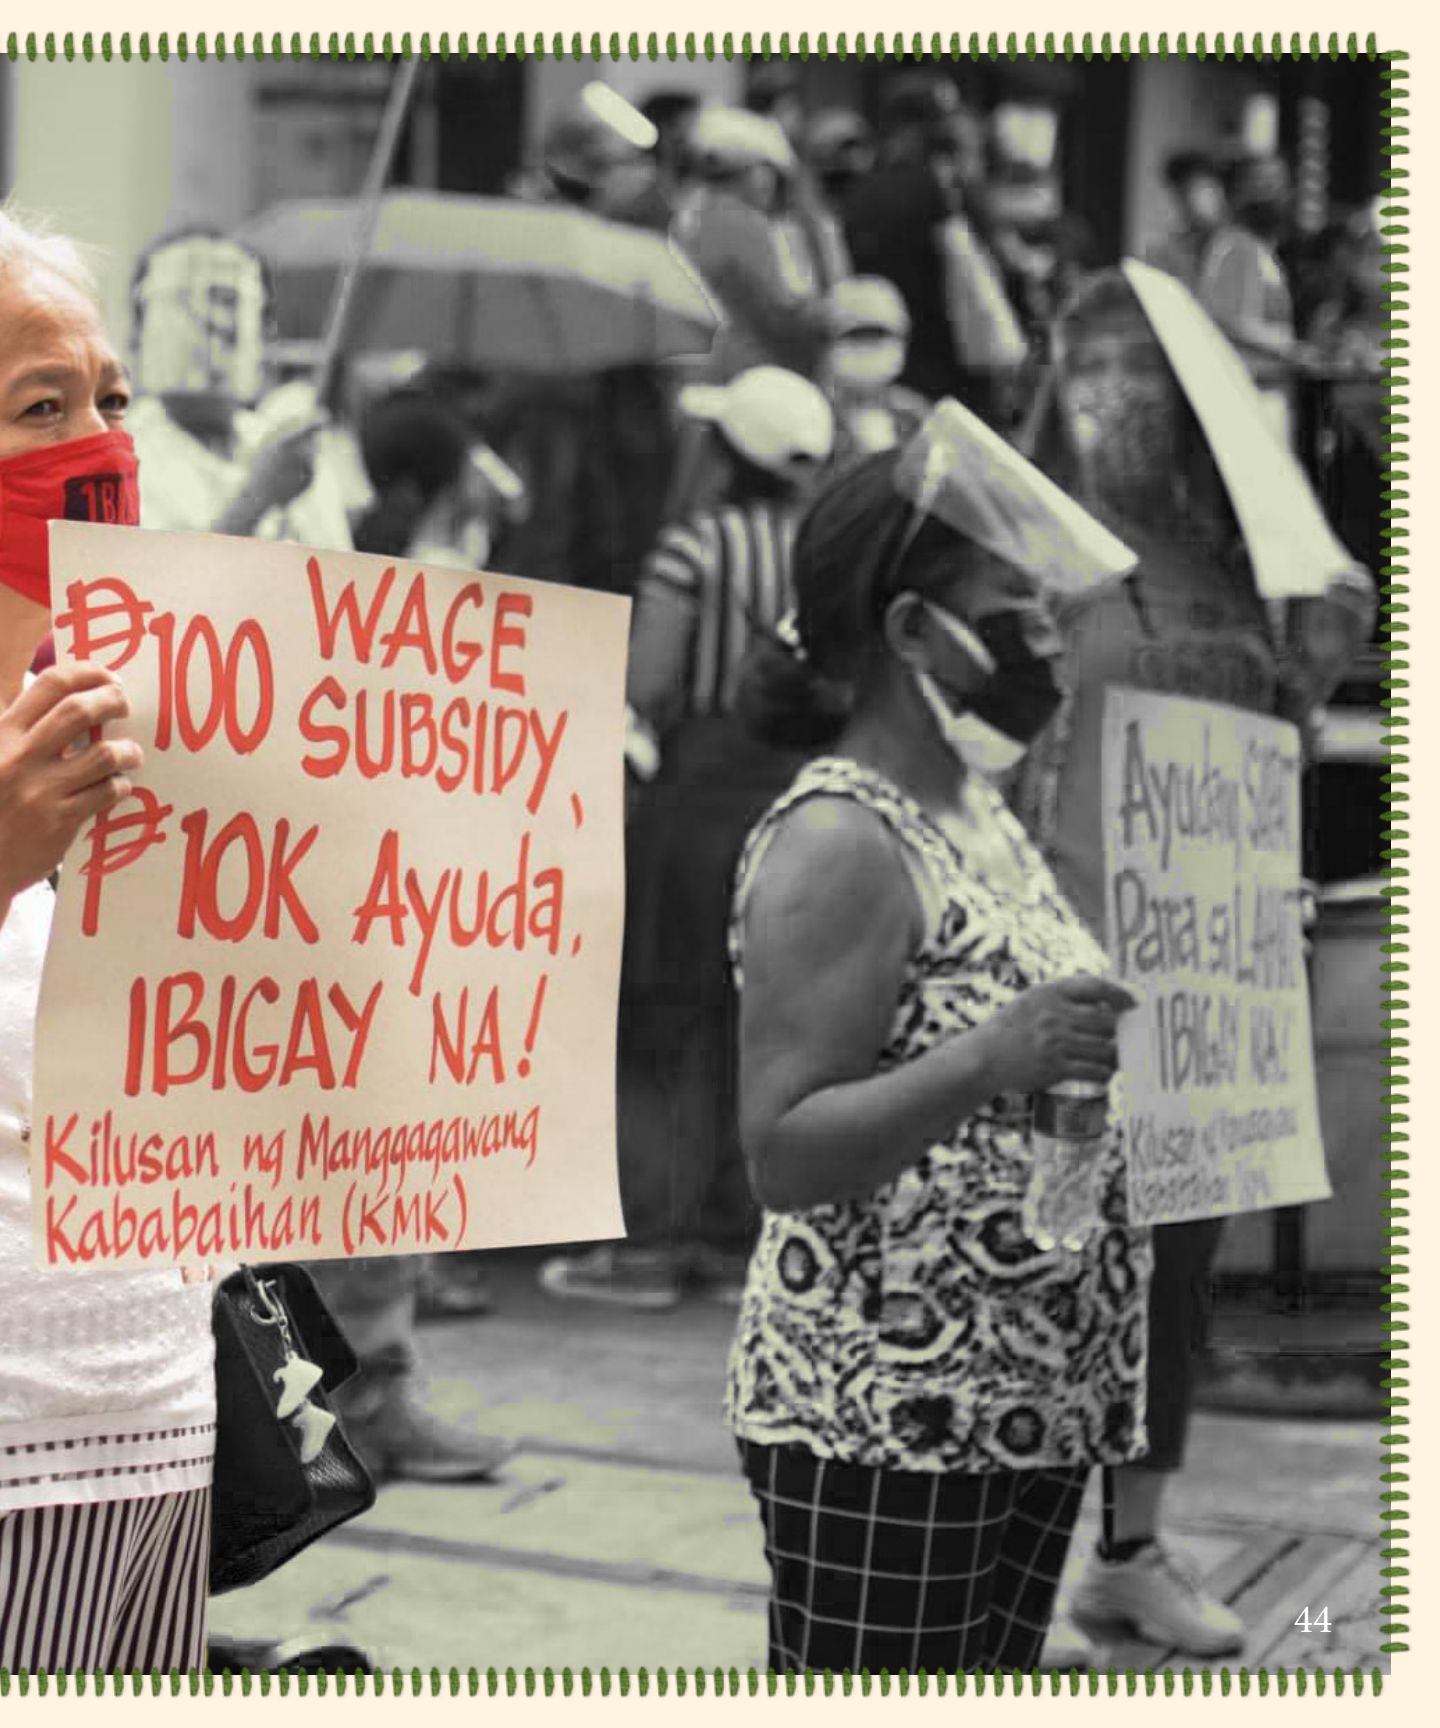 ₱100 WAGE
SUBSIDY,
₱10K Ayuda,
IBIGAY NA!
Kilusan ng Manggagawang
Kababaihan (KMK)
Ayudang
Para sa LAHAT
IBIGAY NA!
Kilusan ng Manggagawang
Kababaihan KMK
44